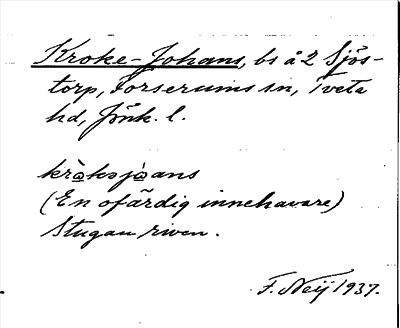 Kroke-Johans, bs å 2 Sjös-
torp, Forserums sn, Tveta
hd, Jönk. l.
kròksjòans
(En ofärdig innehavare)
Stugan riven.
F. Neij 1937.